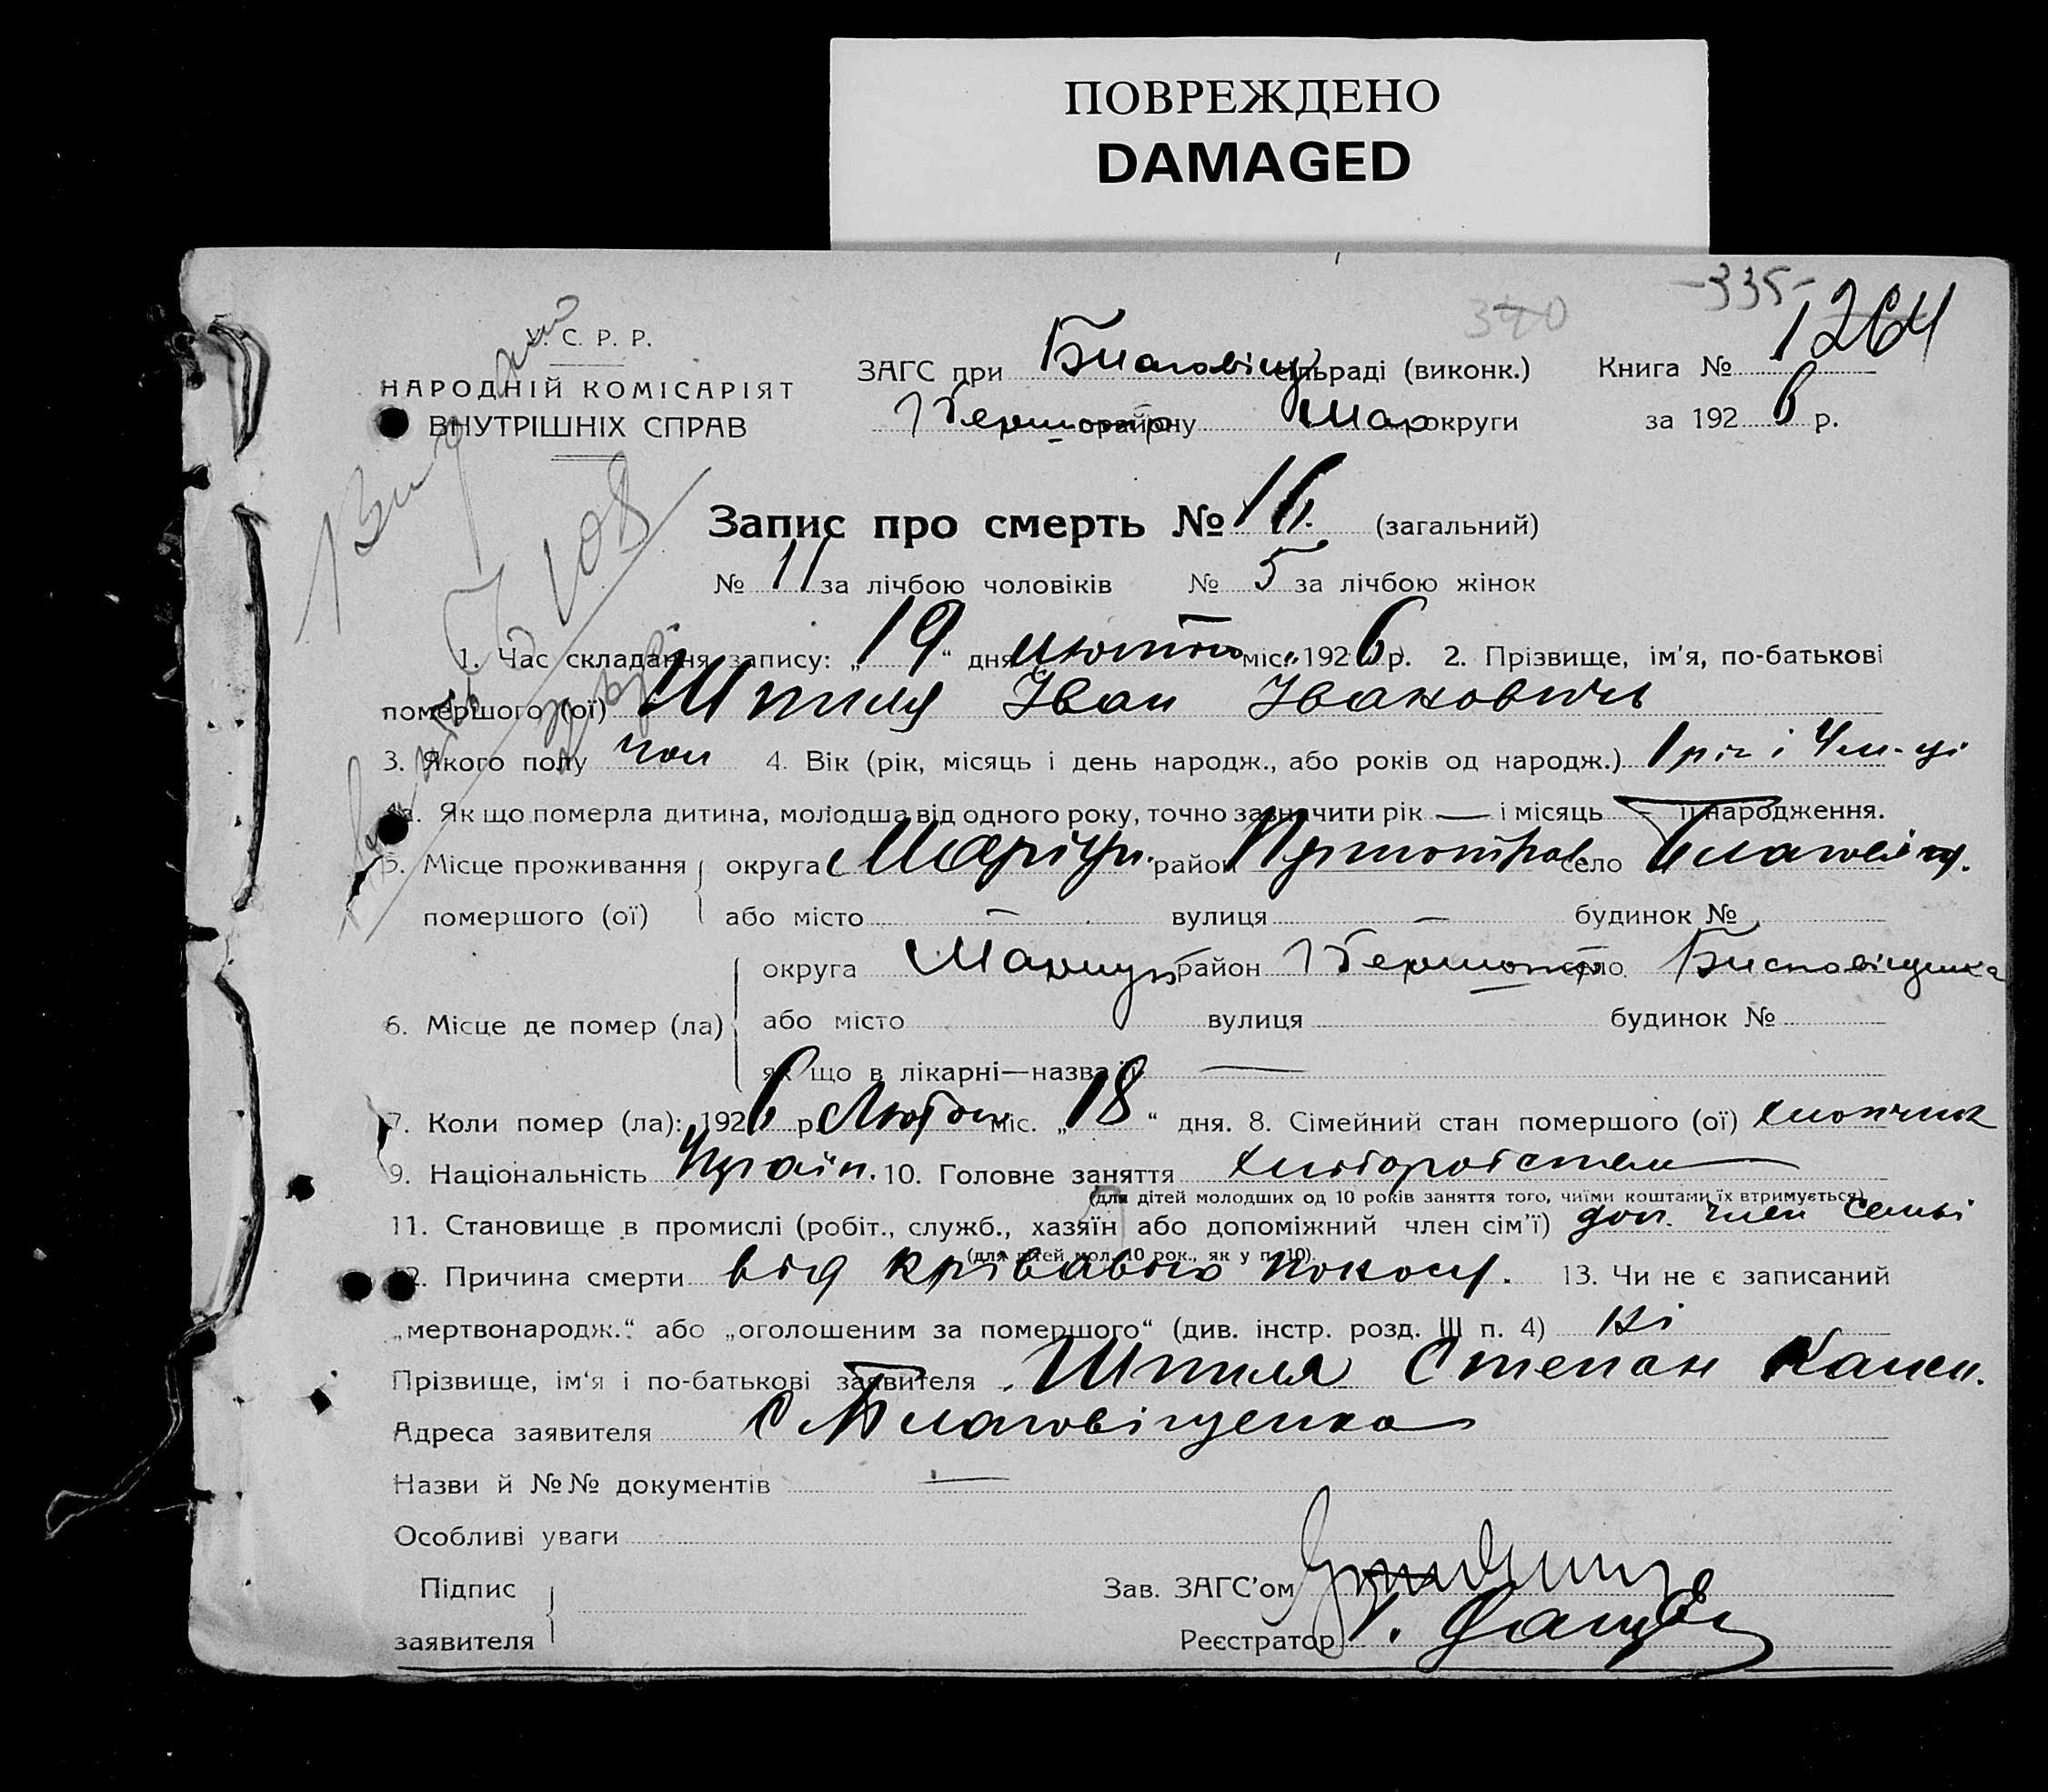 ПОВРЕЖДЕНО
DAMAGED
-335-
340
1264
У. С. Р. Р.
НАРОДНІЙ КОМІСАРІЯТ
ВНУТРІШНІХ СПРАВ
ЗАГС при Благовіщ сільраді (виконк.) Книга №
району Мар округи за 1926 р.
Запис про смерть № 16. (загальний)
№ 11 за лічбою чоловіків № 5 за лічбою жінок
1. Час складання запису: „19“ дня лютого міс. 1926 р. 2. Прізвище, ім'я, по-батькові
помершого (ої) Шпиля Іван Іванович
3. Якого полу чол 4. Вік (рік, місяць і день народж., або років од народж.) 1 ріг і 4 м-ці
4а. Як що померла дитина, молодша від одного року, точно зазначити рік — і місяць — її народження.
5. Місце проживання округа Маріуп. район село Благовіщ.
помершого (ої) або місто — вулиця — будинок №
округа Мариуп район село Благовіщенка
6. Місце де помер (ла) або місто вулиця будинок №
як що в лікарні—назва її —
7. Коли помер (ла): 1926 р. Лютого міс. „18“ дня. 8. Сімейний стан помершого (ої) хлопчик
9. Національність Украін. 10. Головне заняття хлібороіством
(для дітей молодших од 10 років заняття того, чиїми коштами їх втримується)
11. Становище в промислі (робіт., служб., хазяїн або допоміжний член сім'ї) доп. член семьі
(для дітей мол. 10 рок., як у п. 10).
12. Причина смерти від крівавого поносу. 13. Чи не є записаний
„мертвонародж.“ або „оголошеним за помершого“ (див. інстр. розд. III п. 4) ні
Прізвище, ім'я і по-батькові заявителя Шпиля Степан
Адреса заявителя с Благовіщенка
Назви й №№ документів —
Особливі уваги
Підпис
заявителя
Зав. ЗАГС'ом
Реєстратор